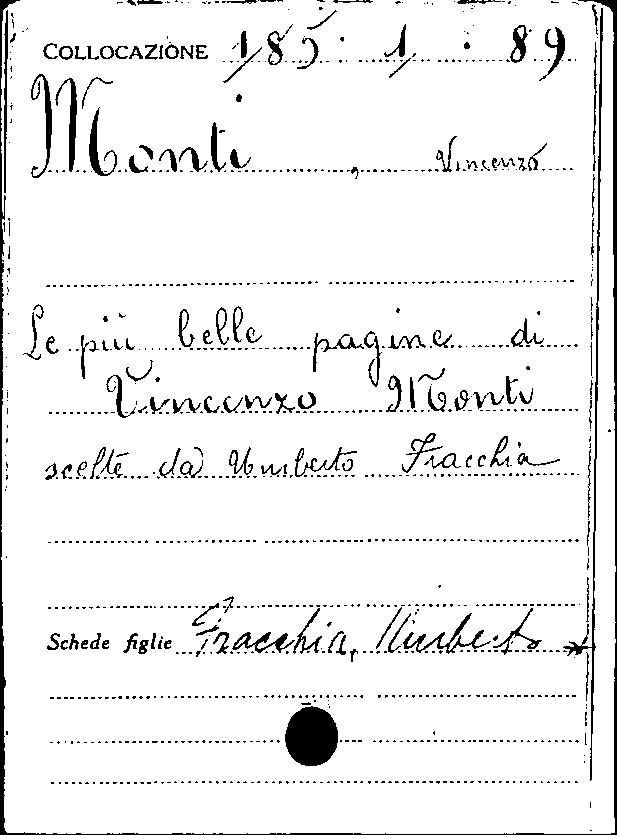 COLLOCAZIONE 185. 1. 89
Monti, Vincenzo
Le più belle pagine di
Vincenzo Monti
scelte da Umberto Fracchia
Schede figlie Fracchia, Umberto *